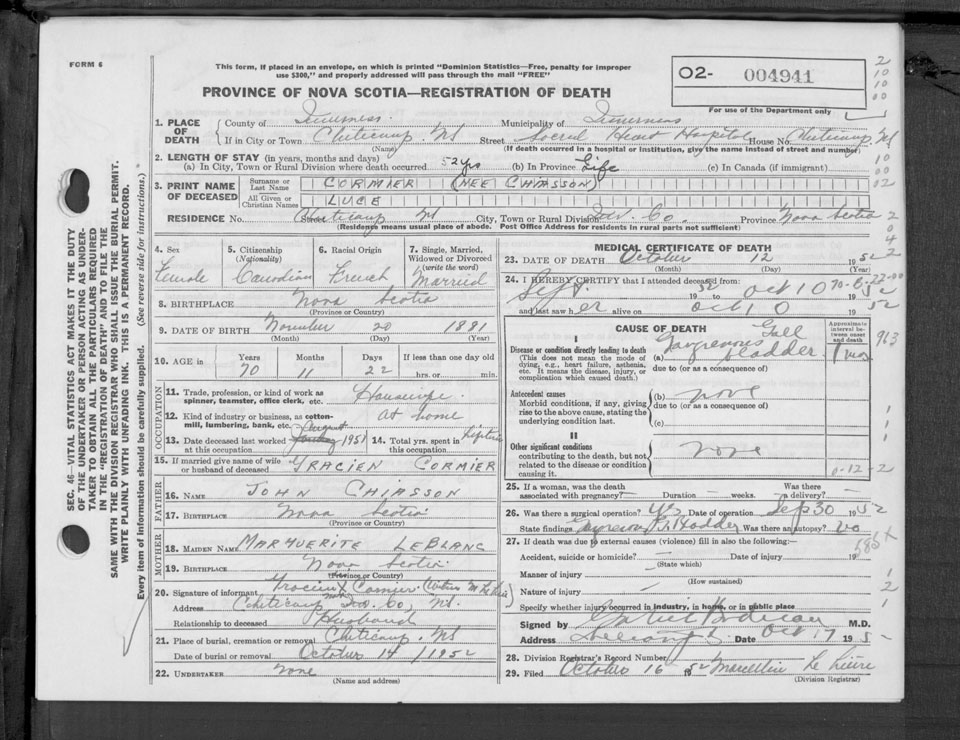 FORM 6
This form, if placed in an envelope, on which is printed "Dominion Statistics—Free, penalty for improper
use $300," and properly addressed will pass through the mail "FREE"
PROVINCE OF NOVA SCOTIA—REGISTRATION OF DEATH
02- 004941
For use of the Department only
1. PLACE OF DEATH
County of Inverness. Municipality of Inverness
If in City or Town Cheticamp NS Street Sacred Heart Hospital House No. Cheticamp NS
(Name) (If death occurred in a hospital or institution, give the name instead of street and number)
2. LENGTH OF STAY (in years, months and days)
(a) In City, Town or Rural Division where death occurred 52 yrs (b) In Province Life (c) In Canada (if immigrant)
3. PRINT NAME OF DECEASED
Surname or Last Name CORMIER (NEE CHIASSON)
All Given or Christian Names LUCE
RESIDENCE No. Street Cheticamp NS City, Town or Rural Division Inv. Co. Province Nova Scotia
(Residence means usual place of abode. Post Office Address for residents in rural parts not sufficient)
4. Sex Female
5. Citizenship (Nationality) Canadian
6. Racial Origin French
7. Single, Married, Widowed or Divorced (write the word) Married
8. BIRTHPLACE Nova Scotia
(Province or Country)
9. DATE OF BIRTH November 20 1881
(Month) (Day) (Year)
10. AGE in Years 70 Months 11 Days 22 If less than one day old hrs. or min.
OCCUPATION
11. Trade, profession, or kind of work as spinner, teamster, office clerk, etc. Housewife
12. Kind of industry or business, as cotton-mill, lumbering, bank, etc. at home
13. Date deceased last worked at this occupation August 1951
14. Total yrs. spent in this occupation lifetime
15. If married give name of wife or husband of deceased GRACIEN CORMIER
FATHER
16. NAME JOHN CHIASSON
17. BIRTHPLACE Nova Scotia
(Province or Country)
MOTHER
18. MAIDEN NAME MARGUERITE LEBLANC
19. BIRTHPLACE Nova Scotia
(Province or Country)
20. Signature of informant Gracien X Cormier
Address Cheticamp Inv. Co, NS.
Relationship to deceased Husband
21. Place of burial, cremation or removal Cheticamp. NS
Date of burial or removal October 14 / 1952
22. UNDERTAKER none
(Name and address)
MEDICAL CERTIFICATE OF DEATH
23. DATE OF DEATH October 12 1952
(Month) (Day) (Year)
24. I HEREBY CERTIFY that I attended deceased from:
Sept. 1952 to Oct 10 1952
and last saw her alive on Oct 10 1952
CAUSE OF DEATH
Approximate interval between onset and death
I
Disease or condition directly leading to death (a) Gangrenous Gall bladder
(This does not mean the mode of dying, e.g., heart failure, asthenia, etc. It means the disease, injury, or complication which caused death.)
due to (or as a consequence of)
Antecedent causes (b) none
Morbid conditions, if any, giving rise to the above cause, stating the underlying condition last.
due to (or as a consequence of)
(c)
II
Other significant conditions none
contributing to the death, but not related to the disease or condition causing it.
25. If a woman, was the death associated with pregnancy? Duration weeks. Was there a delivery?
26. Was there a surgical operation? Yes Date of operation Sept 30 1952
State findings Gangrenous G. Bladder Was there an autopsy? no
27. If death was due to external causes (violence) fill in also the following:—
Accident, suicide or homicide? Date of injury 19
(State which)
Manner of injury
(How sustained)
Nature of injury
Specify whether injury occurred in industry, in home, or in public place
Signed by M.D.
Address Date Oct 17 195
28. Division Registrar's Record Number
29. Filed October 16 1952 Marcellin Le Lièvre
(Division Registrar)
SEC. 46—VITAL STATISTICS ACT MAKES IT THE DUTY
OF THE UNDERTAKER OR PERSON ACTING AS UNDER-
TAKER TO OBTAIN ALL THE PARTICULARS REQUIRED
IN THE "REGISTRATION OF DEATH" AND TO FILE THE
SAME WITH THE DIVISION REGISTRAR WHO SHALL ISSUE THE BURIAL PERMIT.
WRITE PLAINLY WITH UNFADING INK. THIS IS A PERMANENT RECORD.
Every item of information should be carefully supplied. (See reverse side for instructions.)